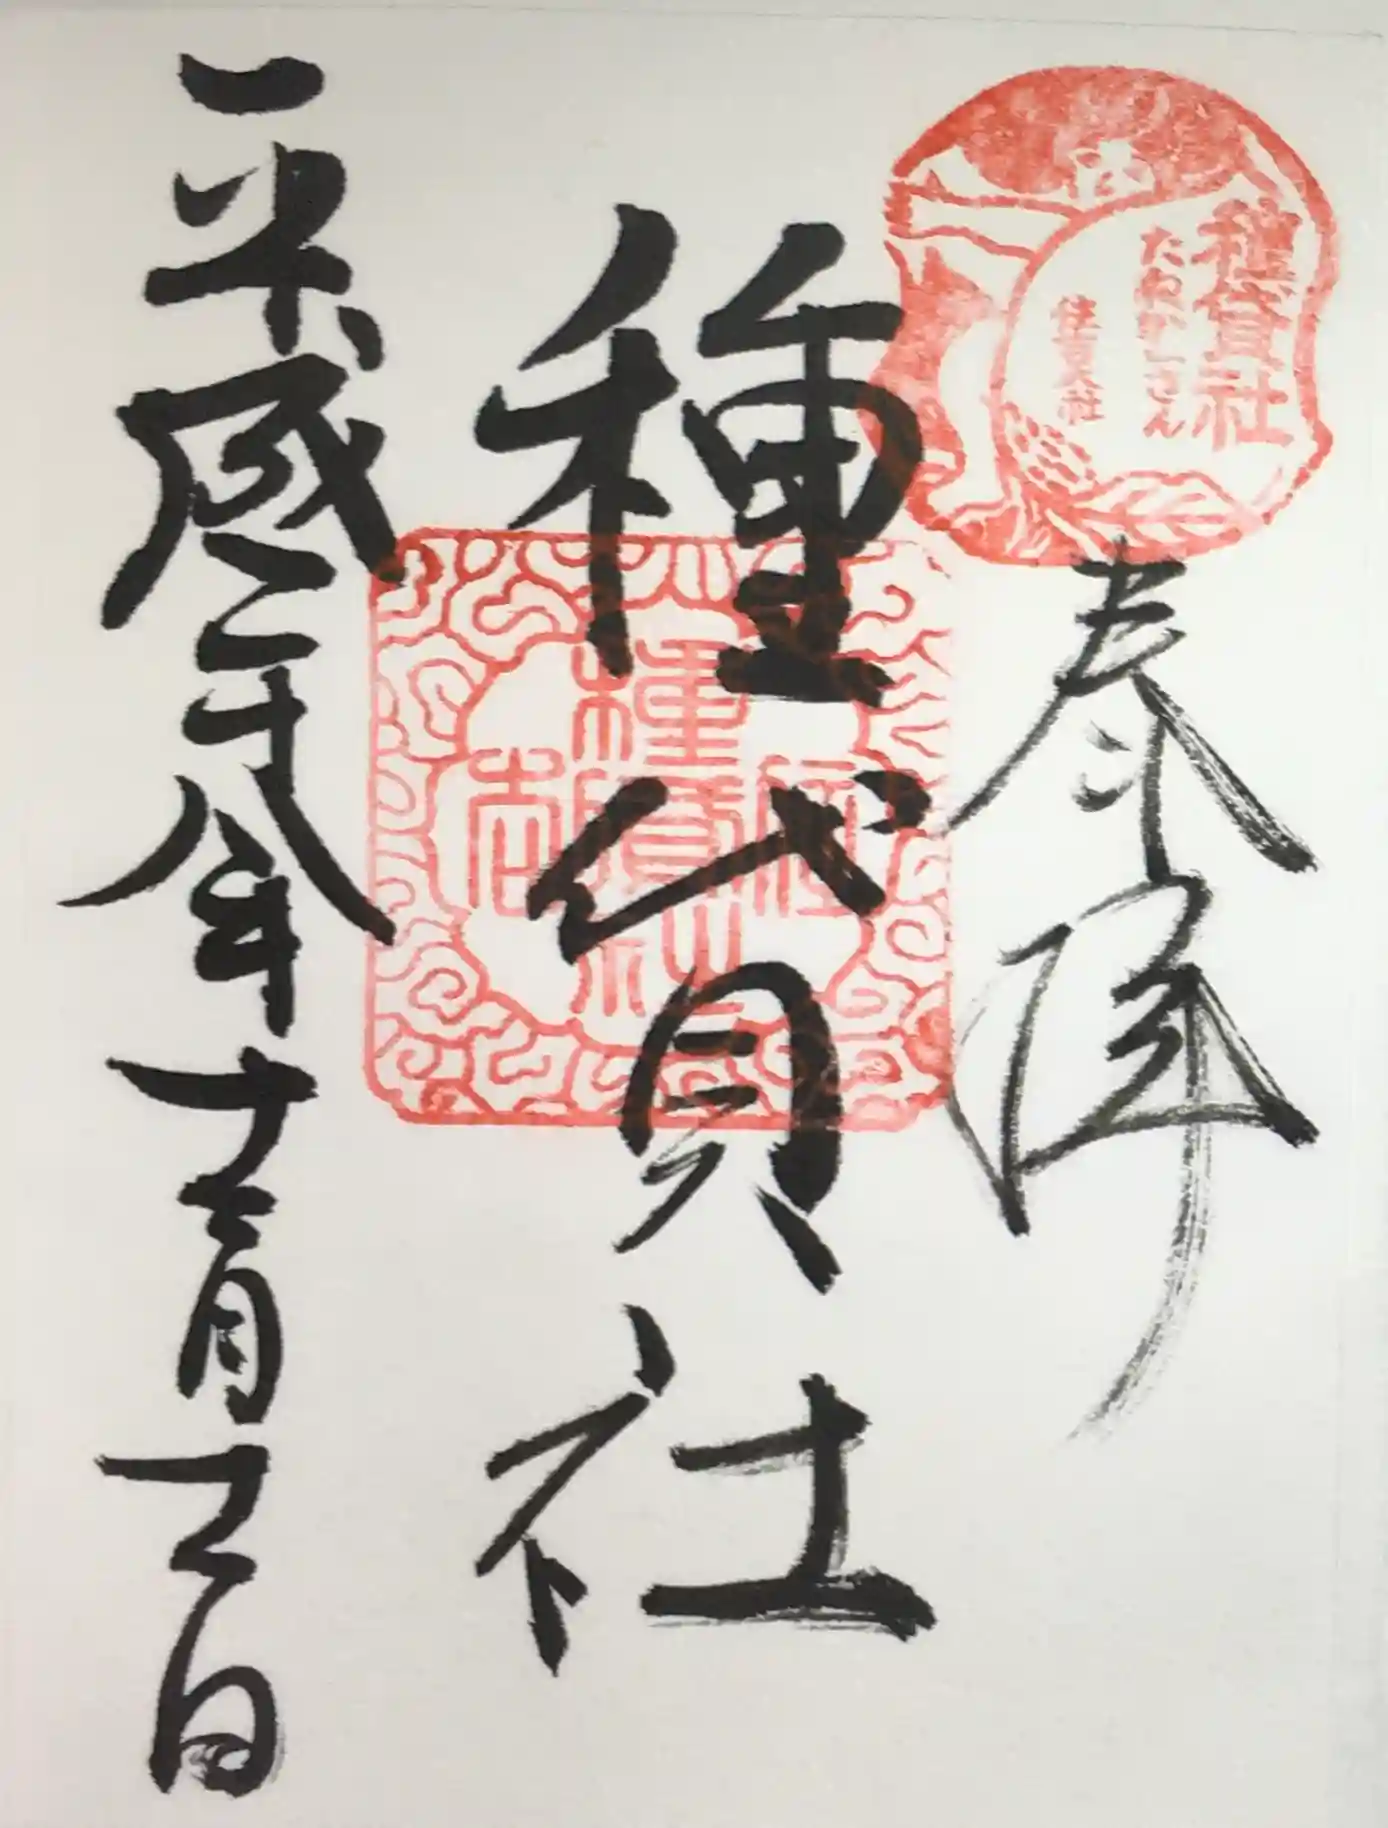 種貸社
たねかしさん
住吉大社
奉拝
種貸社
住吉
種貸社
平成二十八年十二月二日